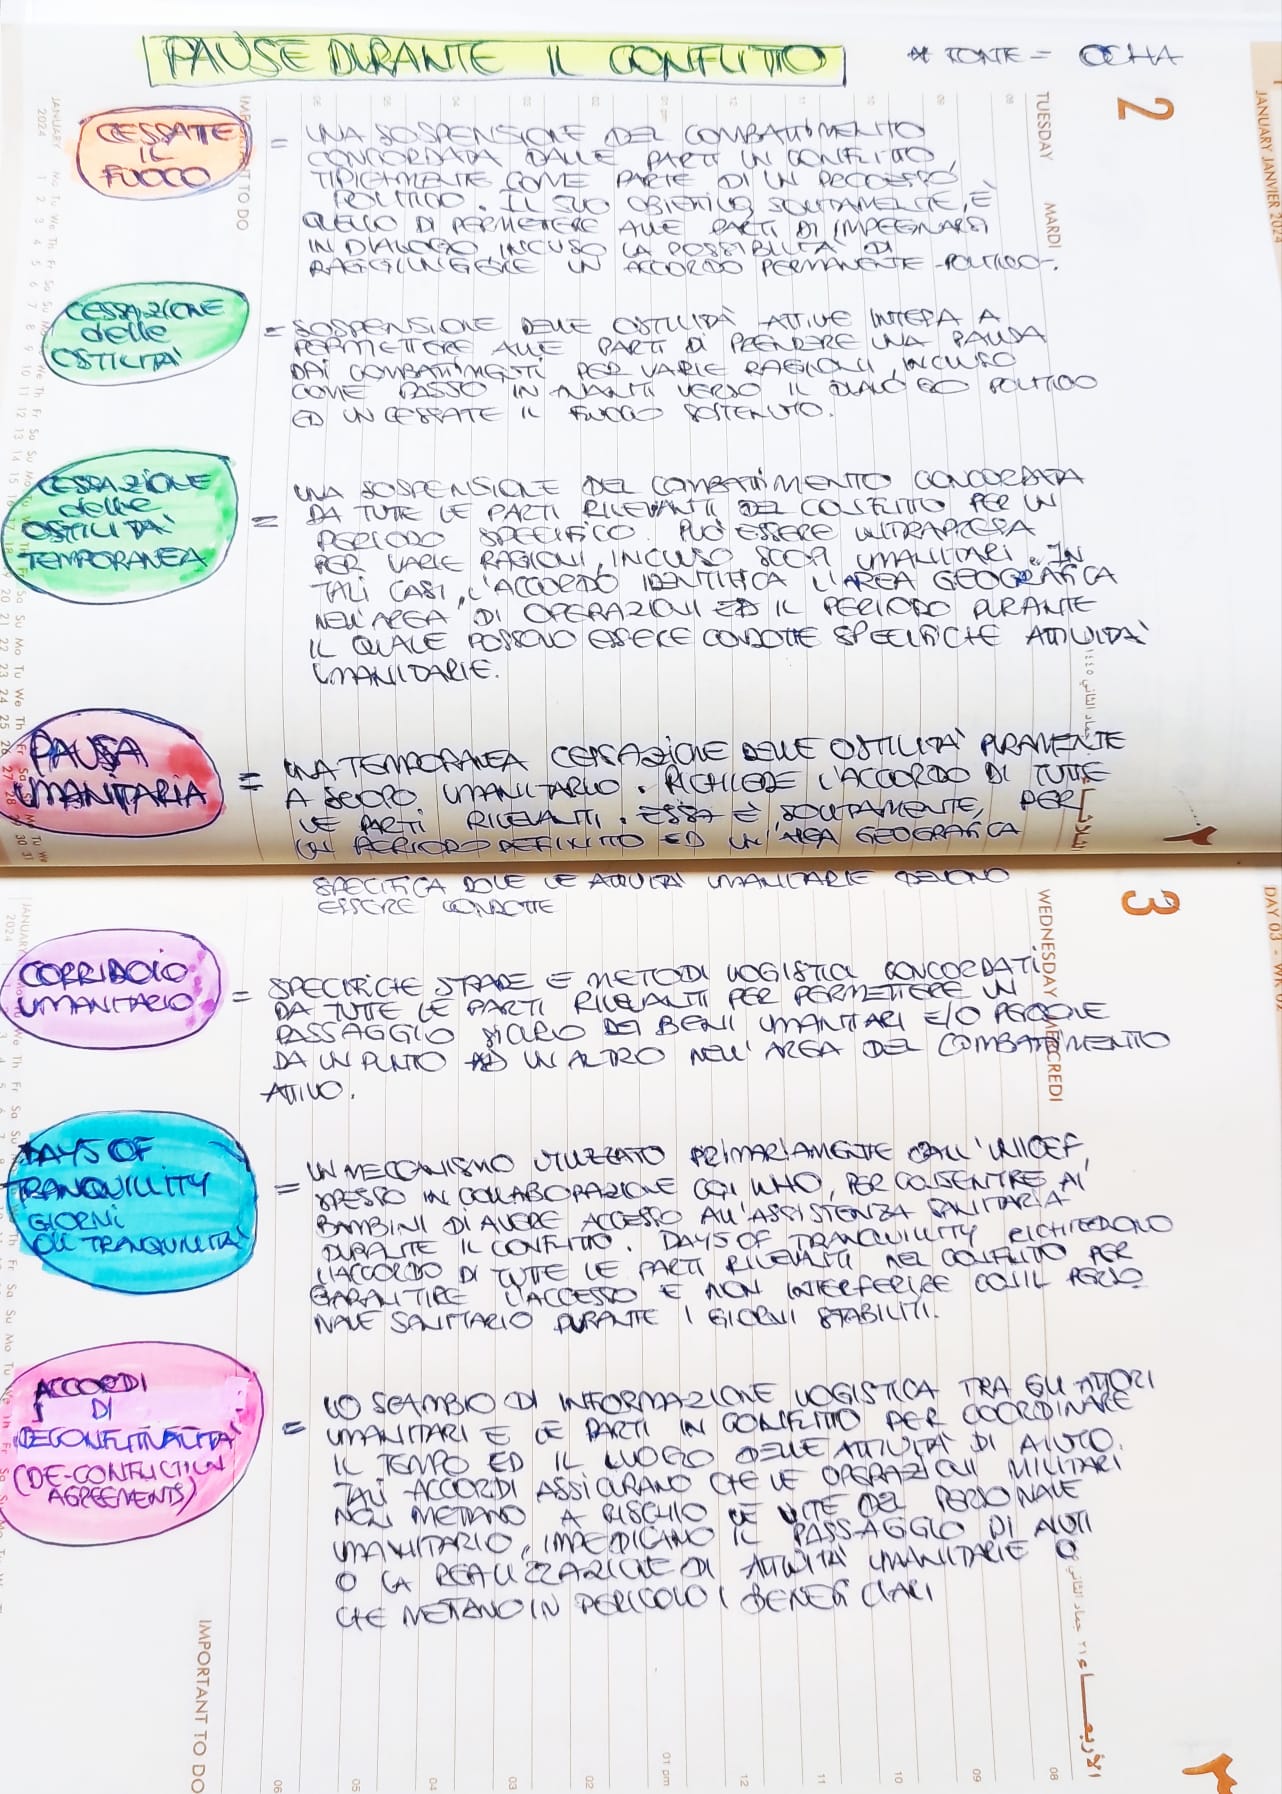 PAUSE DURANTE IL CONFLITTO
* FONTE = OCHA
CESSATE
IL
FUOCO
= UNA SOSPENSIONE DEL COMBATTIMENTO
CONCORDATA DALLE PARTI IN CONFLITTO,
TIPICAMENTE COME PARTE DI UN PROCESSO
POLITICO. IL SUO OBIETTIVO, SOLITAMENTE, È
QUELLO DI PERMETTERE ALLE PARTI DI IMPEGNARSI
IN DIALOGO INCLUSO LA POSSIBILITÀ DI
RAGGIUNGERE UN ACCORDO PERMANENTE -POLITICO-.
CESSAZIONE
delle
OSTILITÀ
= SOSPENSIONE DELLE OSTILITÀ ATTIVE INTESA A
PERMETTERE ALLE PARTI DI PRENDERE UNA PAUSA
DAI COMBATTIMENTI PER VARIE RAGIONI, INCLUSO
COME PASSO IN AVANTI VERSO IL DIALOGO POLITICO
ED UN CESSATE IL FUOCO SOSTENUTO.
CESSAZIONE
delle
OSTILITÀ
TEMPORANEA
= UNA SOSPENSIONE DEL COMBATTIMENTO CONCORDATA
DA TUTTE LE PARTI RILEVANTI DEL CONFLITTO PER UN
PERIODO SPECIFICO. PUÒ ESSERE INTRAPRESA
PER VARIE RAGIONI, INCLUSO SCOPI UMANITARI. IN
TALI CASI, L'ACCORDO IDENTIFICA L'AREA GEOGRAFICA
NELL'AREA DI OPERAZIONI ED IL PERIODO DURANTE
IL QUALE POSSONO ESSERE CONDOTTE SPECIFICHE ATTIVITÀ
UMANITARIE.
PAUSA
UMANITARIA
= UNA TEMPORANEA CESSAZIONE DELLE OSTILITÀ PURAMENTE
A SCOPO UMANITARIO. RICHIEDE L'ACCORDO DI TUTTE
LE PARTI RILEVANTI. ESSA È SOLITAMENTE, PER
UN PERIODO DEFINITO ED UN'AREA GEOGRAFICA
SPECIFICA DOVE LE ATTIVITÀ UMANITARIE DEVONO
ESSERE CONDOTTE
CORRIDOIO
UMANITARIO
= SPECIFICHE STRADE E METODI LOGISTICI CONCORDATI
DA TUTTE LE PARTI RILEVANTI PER PERMETTERE UN
PASSAGGIO SICURO DEI BENI UMANITARI E/O PERSONE
DA UN PUNTO AD UN ALTRO NELL'AREA DEL COMBATTIMENTO
ATTIVO.
DAYS OF
TRANQUILLITY
GIORNI
DI TRANQUILLITÀ
= UN MECCANISMO UTILIZZATO PRIMARIAMENTE DALL'UNICEF,
SPESSO IN COLLABORAZIONE CON WHO, PER CONSENTIRE AI
BAMBINI DI AVERE ACCESSO ALL'ASSISTENZA SANITARIA
DURANTE IL CONFLITTO. DAYS OF TRANQUILLITY RICHIEDONO
L'ACCORDO DI TUTTE LE PARTI RILEVANTI NEL CONFLITTO PER
GARANTIRE L'ACCESSO E NON INTERFERIRE CON IL PERSO
NALE SANITARIO DURANTE I GIORNI STABILITI.
ACCORDI
DI
DECONFLITTUALITÀ
(DE-CONFLICTION
AGREEMENTS)
= LO SCAMBIO DI INFORMAZIONE LOGISTICA TRA GLI ATTORI
UMANITARI E LE PARTI IN CONFLITTO PER COORDINARE
IL TEMPO ED IL LUOGO DELLE ATTIVITÀ DI AIUTO.
TALI ACCORDI ASSICURANO CHE LE OPERAZIONI MILITARI
NON METTANO A RISCHIO LE VITE DEL PERSONALE
UMANITARIO, IMPEDICANO IL PASSAGGIO DI AIUTI
O LA REALIZZAZIONE DI ATTIVITÀ UMANITARIE O
CHE METTANO IN PERICOLO I BENEFICIARI
2
TUESDAY MARDI
JANUARY JANVIER 2024
3
WEDNESDAY MERCREDI
DAY 03
IMPORTANT TO DO
JANUARY
2024
06 05 04 03 02 01 pm 12 11 10 09 08
الأربعاء